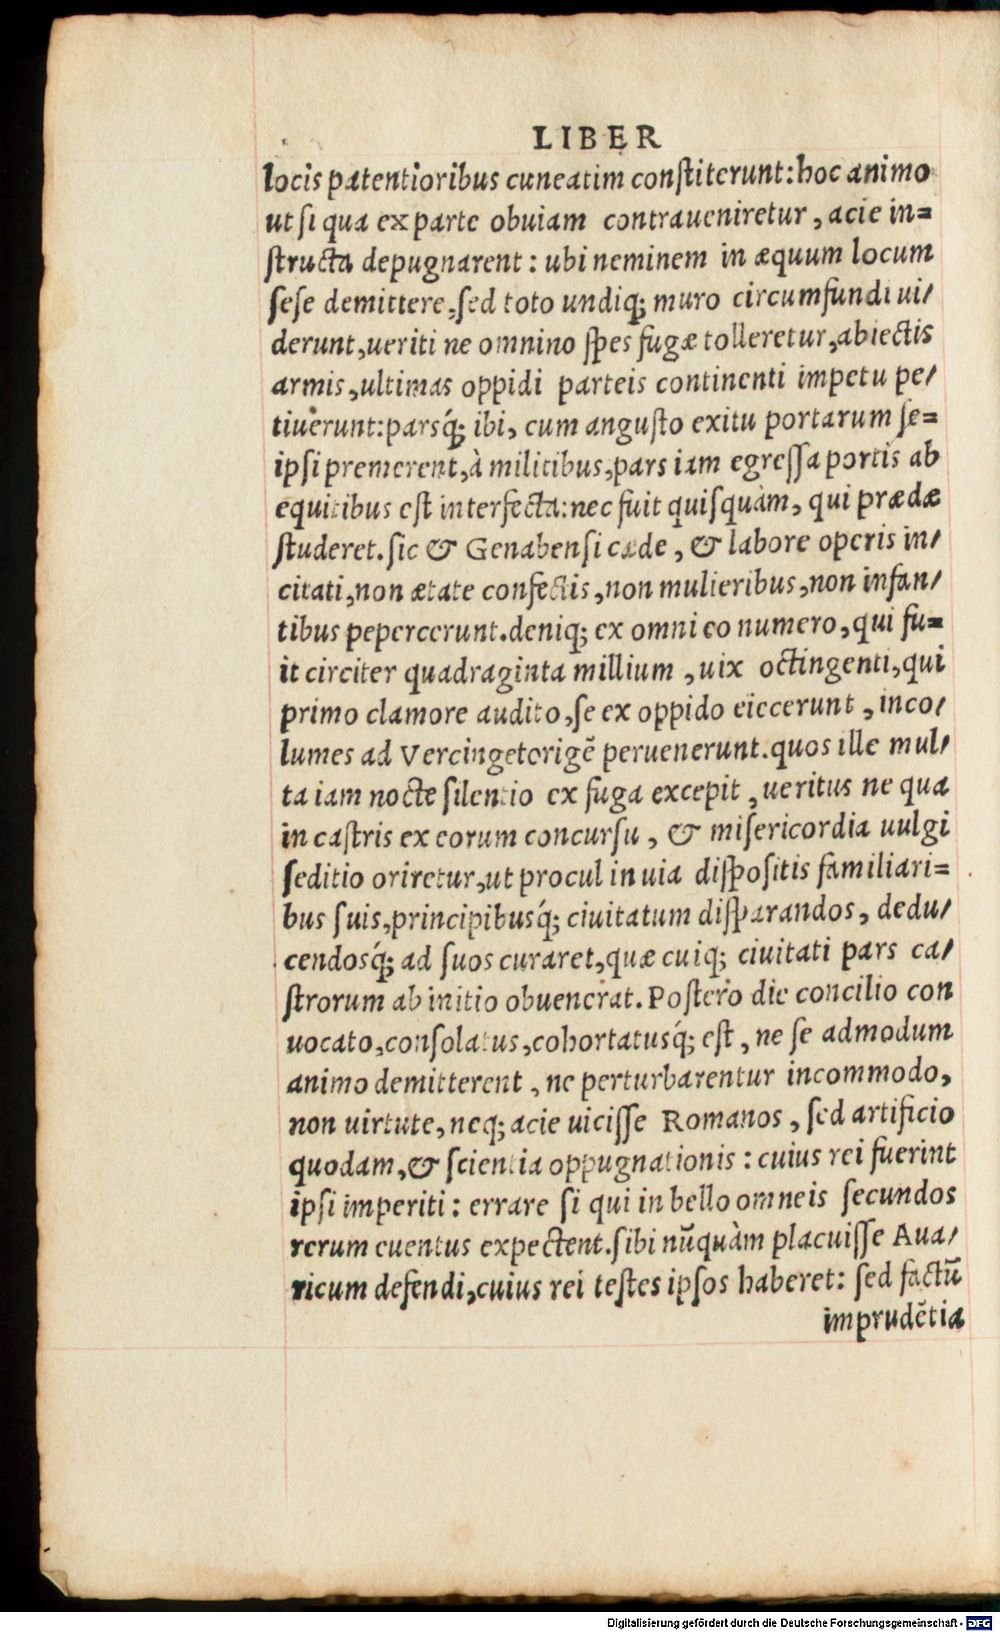 LIBER
locis patentioribus cuneatim conſtiterunt: hoc animo
ut ſi qua ex parte obuiam contraueniretur, acie in=
ſtructa depugnarent: ubi neminem in æquum locum
ſeſe demittere, ſed toto undiq; muro circumfundi ui/
derunt, ueriti ne omnino ſpes fugæ tolleretur, abiectis
armis, ultimas oppidi parteis continenti impetu pe/
tiuerunt: parsq́; ibi, cum anguſto exitu portarum ſe=
ipſi premerent, à militibus, pars iam egreſſa portis ab
equitibus eſt interfecta: nec fuit quiſquàm, qui prædæ
ſtuderet. ſic & Genabenſi cæde, & labore operis in/
citati, non ætate confectis, non mulieribus, non infan/
tibus pepercerunt. deniq; ex omni eo numero, qui fu=
it circiter quadraginta millium, uix octingenti, qui
primo clamore audito, ſe ex oppido eiecerunt, inco/
lumes ad Vercingetorigē peruenerunt. quos ille mul/
ta iam nocte ſilentio ex fuga excepit, ueritus ne qua
in caſtris ex eorum concurſu, & miſericordia uulgi
ſeditio oriretur, ut procul in uia diſpoſitis familiari=
bus ſuis, principibusq́; ciuitatum diſparandos, dedu/
cendosq́; ad ſuos curaret, quæ cuiq; ciuitati pars ca/
ſtrorum ab initio obuenerat. Poſtero die concilio con
uocato, conſolatus, cohortatusq́; eſt, ne ſe admodum
animo demitterent, ne perturbarentur incommodo,
non uirtute, neq; acie uiciſſe Romanos, ſed artificio
quodam, & ſcientia oppugnationis: cuius rei fuerint
ipſi imperiti: errare ſi qui in bello omneis ſecundos
rerum euentus expectent. ſibi nūquàm placuiſſe Aua/
ricum defendi, cuius rei teſtes ipſos haberet: ſed factū
imprudētia
Digitalisierung gefördert durch die Deutsche Forschungsgemeinschaft - DFG